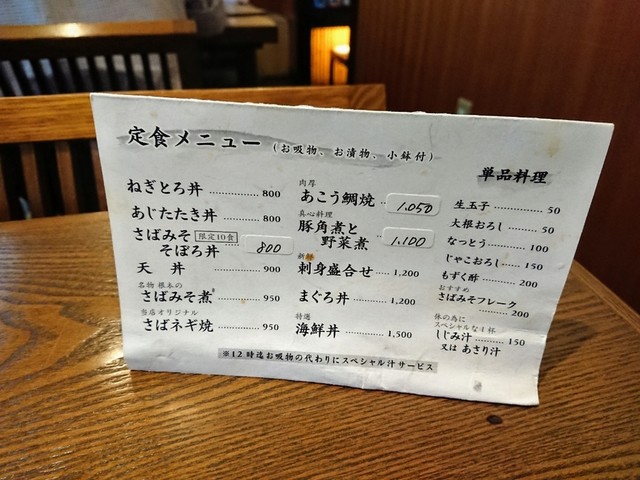 定食メニュー（お吸物、お漬物、小鉢付）
ねぎとろ丼 800
あじたたき丼 800
さばみそ 限定10食
そぼろ丼 800
天 丼 900
名物 根本の
さばみそ煮 950
当店オリジナル
さばネギ焼 950
肉厚
あこう鯛焼 1,050
真心料理
豚角煮と
野菜煮 1,100
刺身盛合せ 1,200
まぐろ丼 1,200
特選
海鮮丼 1,500
単品料理
生玉子 50
大根おろし 50
なっとう 100
じゃこおろし 150
もずく酢 200
おすすめ
さばみそフレーク
200
体の為に
スペシャルな1杯
しじみ汁 150
又は あさり汁
※12時迄お吸物の代わりにスペシャル汁サービス